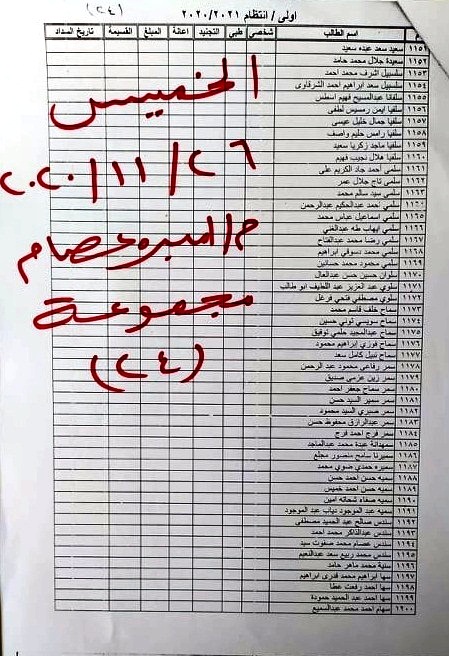 (٢٤)
اولى / انتظام ٢٠٢٠/٢٠٢١
م اسم الطالب شخصي طبى التجنيد اعانة المبلغ القسيمة تاريخ السداد
١١٥١ سعيد سعد عبده سعيد
١١٥٢ سعيدة جلال محمد حامد
١١٥٣ سلسبيل اشرف محمد احمد
١١٥٤ سلسبيل سعد ابراهيم احمد الشرقاوى
١١٥٥ سلفانا عبدالمسيح فهيم اسطس
١١٥٦ سلفيا ايمن رمسيس لطفى
١١٥٧ سلفيا جمال خليل عيسى
١١٥٨ سلفيا رامس حليم واصف
١١٥٩ سلفيا ماجد زكريا سعيد
١١٦٠ سلفيا هلال نجيب فهيم
١١٦١ سلمى أحمد جاد الكريم على
١١٦٢ سلمى تاج جلال عمر
١١٦٣ سلمى سيد سالم محمد
١١٦٤ سلمي احمد عبدالحكيم عبدالرحمن
١١٦٥ سلمي اسماعيل عباس محمد
١١٦٦ سلمي ايهاب طه عبدالغني
١١٦٧ سلمي رضا محمد عبدالفتاح
١١٦٨ سلمي محمد دسوقي ابراهيم
١١٦٩ سلمي محمود محمد حسانين
١١٧٠ سلوان حسين حسن عبدالعال
١١٧١ سلوي عبد العزيز عبد اللطيف ابو طالب
١١٧٢ سلوي مصطفي فتحي فرغل
١١٧٣ سماح خلف قاسم محمد
١١٧٤ سماح سويسي توني حسين
١١٧٥ سماح عبدالمجيد حلمي توفيق
١١٧٦ سماح فوزي إبراهيم محمود
١١٧٧ سماح نبيل كامل سعد
١١٧٨ سمر رفاعى محمود عبد الرحمن
١١٧٩ سمر زين عزمي صديق
١١٨٠ سمر سماح جعفر احمد
١١٨١ سمر سمير السيد حسن
١١٨٢ سمر صبري السيد محمود
١١٨٣ سمر عبدالرازق محفوظ حسن
١١٨٤ سمر فرج احمد فرج
١١٨٥ سمهدانة عبدة محمد عبدالماجد
١١٨٦ سميرنا سامح منصور مجلع
١١٨٧ سميره حمدي ضوي محمد
١١٨٨ سميه حسن احمد حسن
١١٨٩ سميه حسن احمد خميس
١١٩٠ سميه صفاء شحاته امين
١١٩١ سميه عبد الموجود دياب عبد الموجود
١١٩٢ سندس صالح عبد الحميد مصطفي
١١٩٣ سندس عبدالذاكر محمد احمد
١١٩٤ سندس عصام محمد صفوت سيد
١١٩٥ سندس محمد ربيع سعد عبدالنعيم
١١٩٦ سنية محمد ماهر حامد
١١٩٧ سها ابراهيم محمد قدرى ابراهيم
١١٩٨ سها احمد رفعت عطا
١١٩٩ سها احمد عبد الحميد حمودة
١٢٠٠ سهام احمد محمد عبدالسميع
الخميس
٢٦ / ١١ / ٢٠٢٠
م/ اميره عصام
مجموعة
(٢٤)